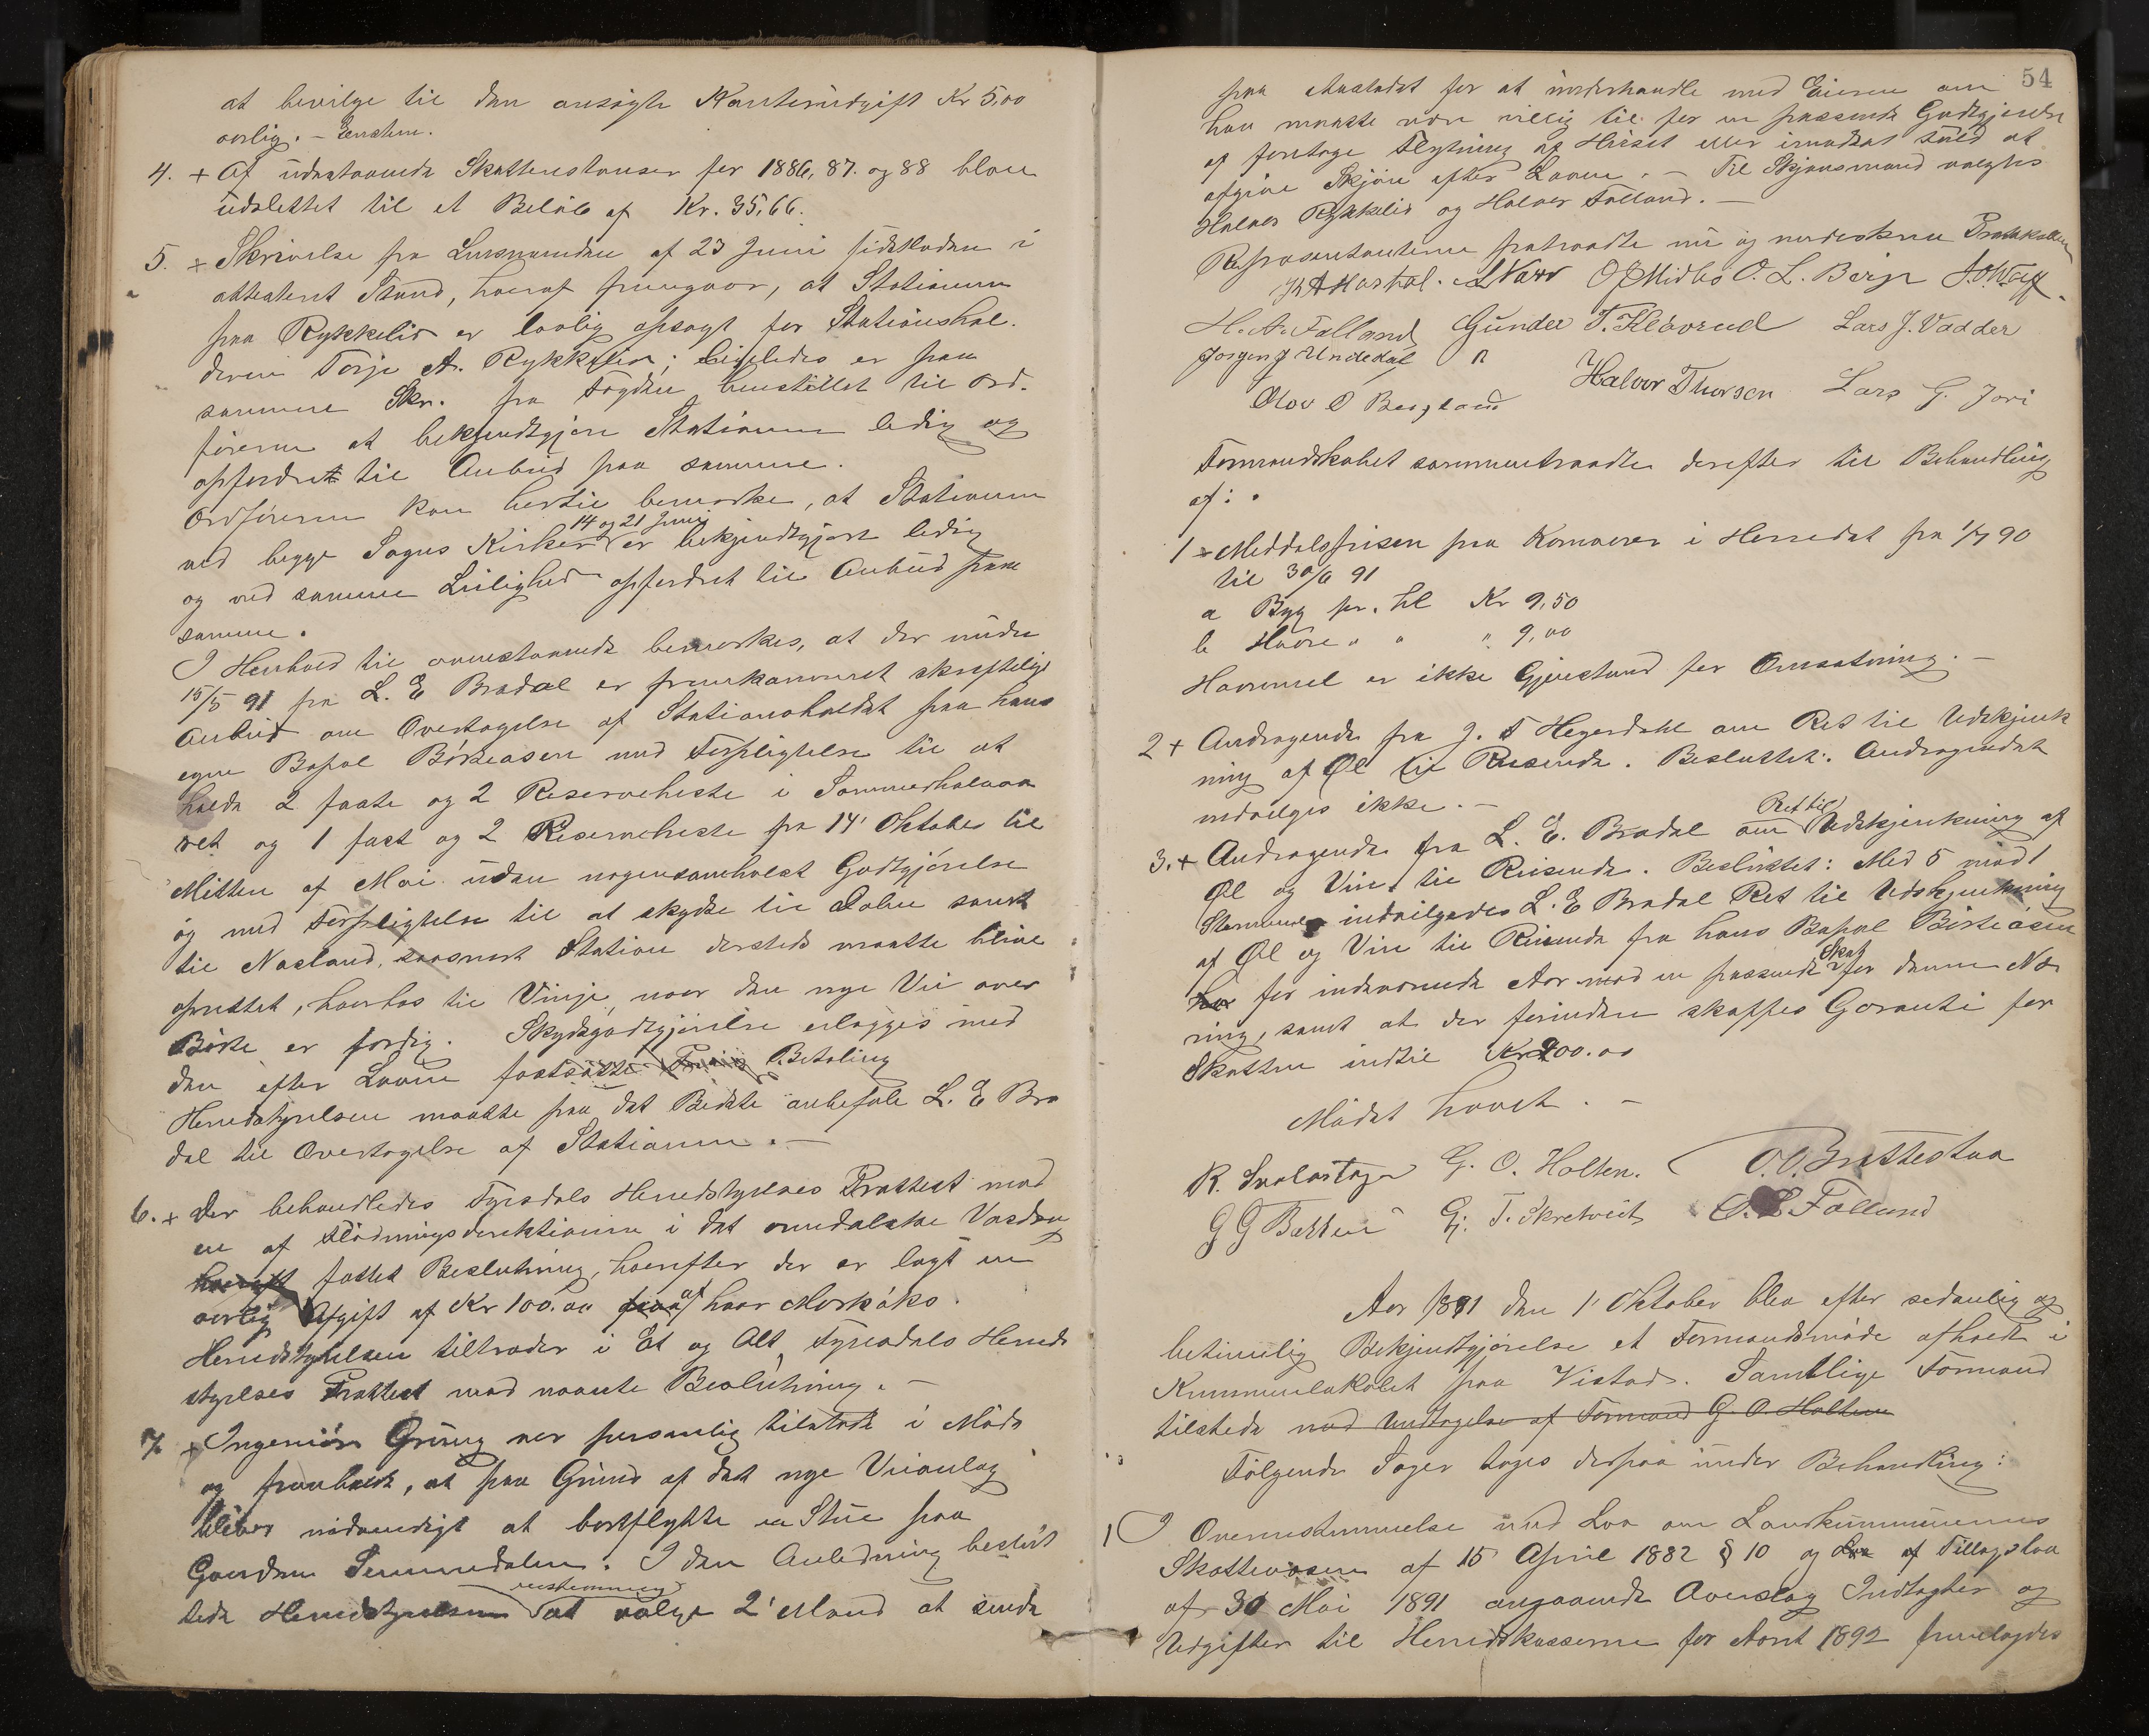 at bevilge til den ansøgte Kontorudgift Kr 5,00
aarlig. – Enstem.
4. + Af udestaaende Skatterestanser for 1886, 87. og 88 blev
udslettet til et Beløb af Kr. 35,66.
5. + Skrivelse fra Lensmanden af 23 Juni sidstleden i
attesteret Stand, hvoraf fremgaar, at Stationen
paa Rykkelid er lovlig opsagt for Stationshol-
deren Torje A. Rykkelid; ligeledes er paa
samme Skr. fra Fogden henstillet til Ord-
føreren at bekjendtgjøre Stationen ledig og
opfordret til Anbud paa samme.
Ordføreren kan hertil bemærke, at Stationen
14 og 21 Juni
ved begge Sognes Kirker er bekjendtgjort ledig
og ved samme Leilighed opfordret til Anbud paa
samme.
I Henhold til ovenstaaende bemærkes, at der under
15/5 91 fra L. E Bradal er fremkommet skriftligt
Anbud om Overtagelse af Stationsholdet paa hans
egen Bopæl Børteaasen med Forpligtelse til at
holde 2 faste og 2 Reserveheste i Sommerhalvaa
ret og 1 fast og 2 Reserveheste fra 14' Oktober til
Mitten af Mai uden nogensomhelst Godtgjørelse
og med Forpligtelse til at skydse til Dalen samt
til Næsland, saasnart Station dersteds maatte blive
oprettet, hvorhos til Vinje, naar den nye Vei over
Børte er færdig. Skydsgodtgjørelse erlægges med
den efter Loven fastsatte Betaling
Herredstyrelsen maatte paa det Bedste anbefale L. E Bra
dal til Overtagelse af Stationen. –
6. + Der behandledes Fyrisdals Herredstyrelses Protest mod
en af Flødningsdirektionen i det arendalske Vasdrag
fattet Beslutning, hvorefter der er lagt en
aarlig Afgift af Kr 100.00 af hver Merkøks.
Herredstyrelsen tiltræder i Et og Alt Fyrisdals Herreds
styrelses Protest mod nævnte Beslutning. –
7. + Ingeniør Grüng var personlig tilstede i Møde
og fremholdt, at paa Grund af det nye Veianlæg
bliver nødvendigt at bortflytte en Stue paa
Gaarden Semmedalen. I den Anledning beslut
enstemmig
tede Herredstyrelsen at vælge 2' Mænd at sende
54
paa Aastedet for at underhandle med Eieren om
han maatte være villig til for en passende Godtgjørelse
at foretage Flytning af Huset eller imodsat Fald at
afgive Skjøn efter Loven. – Til Skjønsmænd valgtes
Halvor Rykkelid og Halvor Falland. –
Repræsentanterne fratraadte nu og underskrev Protokollen
O J Midbø O. L. Berge
H. A. Falland Gunder T. Kleivrud Lars J. Vadder
Jørgen J Undedal
Halvor Thorsen Lars G. Jori
Olav O Bergland
Formandskabet sammentraadte derefter til Behandling
af: .
1 + Middelsprisen paa Kornvarer i Herredet fra 1/7 90
til 30/6 91
a Byg pr. hl Kr 9,50
b Havre " " " 9,00
Havremel er ikke Gjenstand for Omsætning. –
2 + Andragende fra J. T Hegerdahl om Ret til Udskjænk
ning af Øl til Reisende. Besluttet: Andragendet
indvilges ikke. –
Ret til
3. + Andragende fra L. E. Bradal om Udskjænkning af
Øl og Vin til Reisende. Besluttet: Med 5 mod 1
Stemme indvilgedes L. E Bradal Ret til Udskjænkning
af Øl og Vin til Reisende fra hans Bopæl Børteåsen
Skat
for indeværende Aar mod en passende for denne Næ
ring, samt at der forinden skaffes Garanti for
Skatten indtil Kr 200.00
Mødet hævet. –
R. Svalastoga G. O. Holten. O. O. Brattestaa
G G Batten G. T. Skretveit O. L Falland
Aar 1891 den 1' Oktober blev efter sedvanlig og
betimelig Bekjendtgjørelse et Formandsmøde afholdt i
Kommunelokalet paa Vistad. Samtlige Formænd
tilstede med Undtagelse af Formand G. O. Holten
Følgende Sager toges derpaa under Behandling:
1 I Overensstemmelse med Lov om Landkommunernes
Skattevæsen af 15 April 1882 § 10 og Lov af Tillægslov
af 30 Mai 1891 angaaende Overslag Indtægter og
Udgifter til Herredskasserne for Aaret 1892 fremlagdes